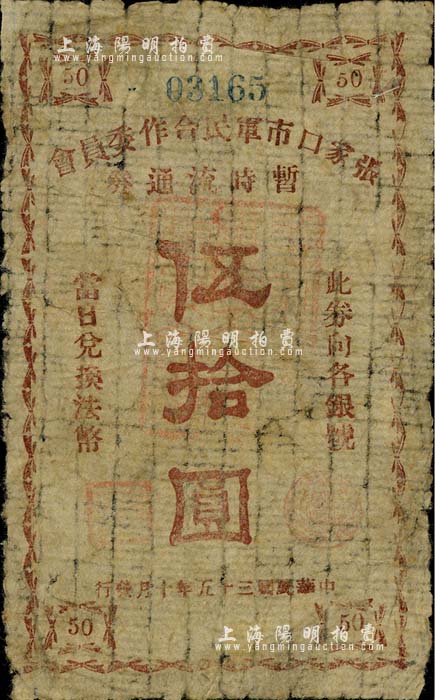 上海陽明拍賣
www.yangmingauction.com
50
50
03165
張家口市軍民合作委員會
暫時流通券
此券向各銀號
伍拾圓
當日兌換法幣
上海陽明拍賣
www.yangmingauction.com
中華民國三十五年十月發行
50
50
上海陽明拍賣
www.yangmingauction.com